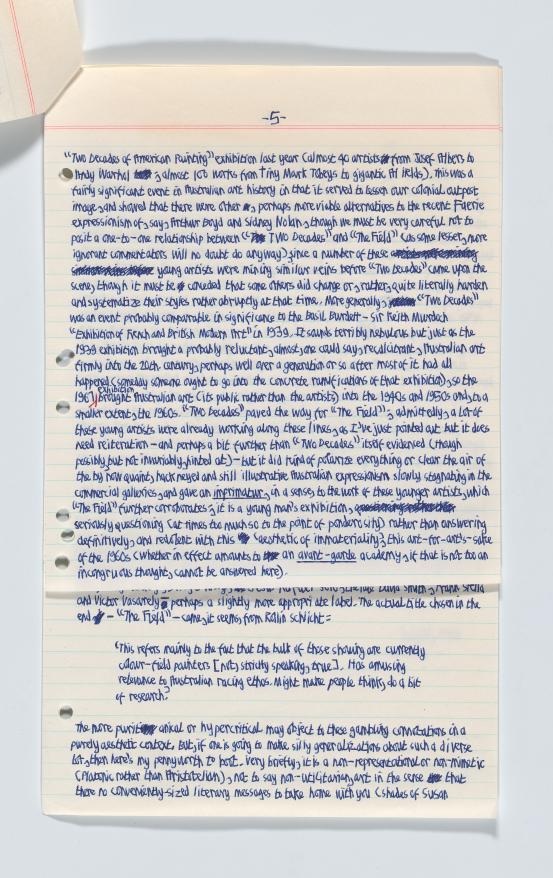 -5-
"Two Decades of American Painting" exhibition last year (almost 40 artists from Josef Albers to
Andy Warhol; almost 100 works from tiny Mark Tobeys to gigantic Al Helds), this was a
fairly significant event in Australian art history in that it served to lessen our colonial outpost
image, and showed that there were other, perhaps more viable alternatives to the recent Faerie
expressionism of, say, Arthur Boyd and Sidney Nolan, though we must be very careful not to
posit a one-to-one relationship between "Two Decades" and "The Field" (as some lesser, more
ignorant commentators will no doubt do anyway); since a number of these
young artists were mining similar veins before "Two Decades" came upon the
scene, though it must be conceded that some others did change or, rather, quite literally harden
and systematize their styles rather abruptly at that time. More generally, "Two Decades"
was an event probably comparable in significance to the Basil Burdett - Sir Keith Murdoch
"Exhibition of French and British Modern Art" in 1939. It sounds terribly nebulous but just as the
1939 exhibition brought a probably reluctant, almost, one could say, recalcitrant, Australian art
firmly into the 20th century, perhaps well over a generation or so after most of it had all
happened (someday someone ought to go into the concrete ramifications of that exhibition), so the
1967 exhibition brought Australian art (its public rather than the artists) into the 1940s and 1950s and, to a
smaller extent, the 1960s. "Two Decades" paved the way for "The Field"; admittedly, a lot of
these young artists were already working along these lines, as I've just pointed out but it does
need reiteration - and perhaps a bit further than "Two Decades" itself evidenced (though
possibly, but not invariably, hinted at) - but it did kind of polarize everything or clear the air of
the by now quaint, hackneyed and still illustrative Australian expressionism slowly stagnating in the
commercial galleries, and gave an imprimatur, in a sense, to the work of these younger artists, which
"The Field" further corroborates; it is a young man's exhibition,
seriously questioning (at times too much so to the point of ponderosity) rather than answering
definitively, and redolent with this "aesthetic of immateriality", this art-for-art's-sake
of the 1960s (whether in effect amounts to an avant-garde academy, if that is not too an
incongruous thought, cannot be answered here).
and Victor Vasarely - perhaps a slightly more appropriate label. The actual title chosen in the
end - "The Field" - came, it seems, from Ralph Schlicht:
'This refers mainly to the fact that the bulk of those showing are currently
colour-field painters [not, strictly speaking, true]. Has amusing
relevance to Australian racing ethos. Might make people think, do a bit
of research.'
The more puritanical or hypercritical may object to these gambling connotations in a
purely aesthetic context. But, if one is going to make silly generalizations about such a diverse
lot, then here's my pennyworth to boot. Very briefly, it is a non-representational or non-mimetic
(Platonic rather than Aristotelian), not to say non-utilitarian, art in the sense that
there no conveniently-sized literary messages to take home with you (shades of Susan